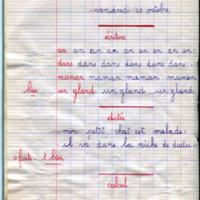 vendredi 23 octobre
écriture
an an an an an an an an an
dans dans dans dans dans dans
maman maman maman maman
bien un gland un gland un gland
dictée
mon petit chat est malade.
il dans la niche de dudu.
bien
calcul